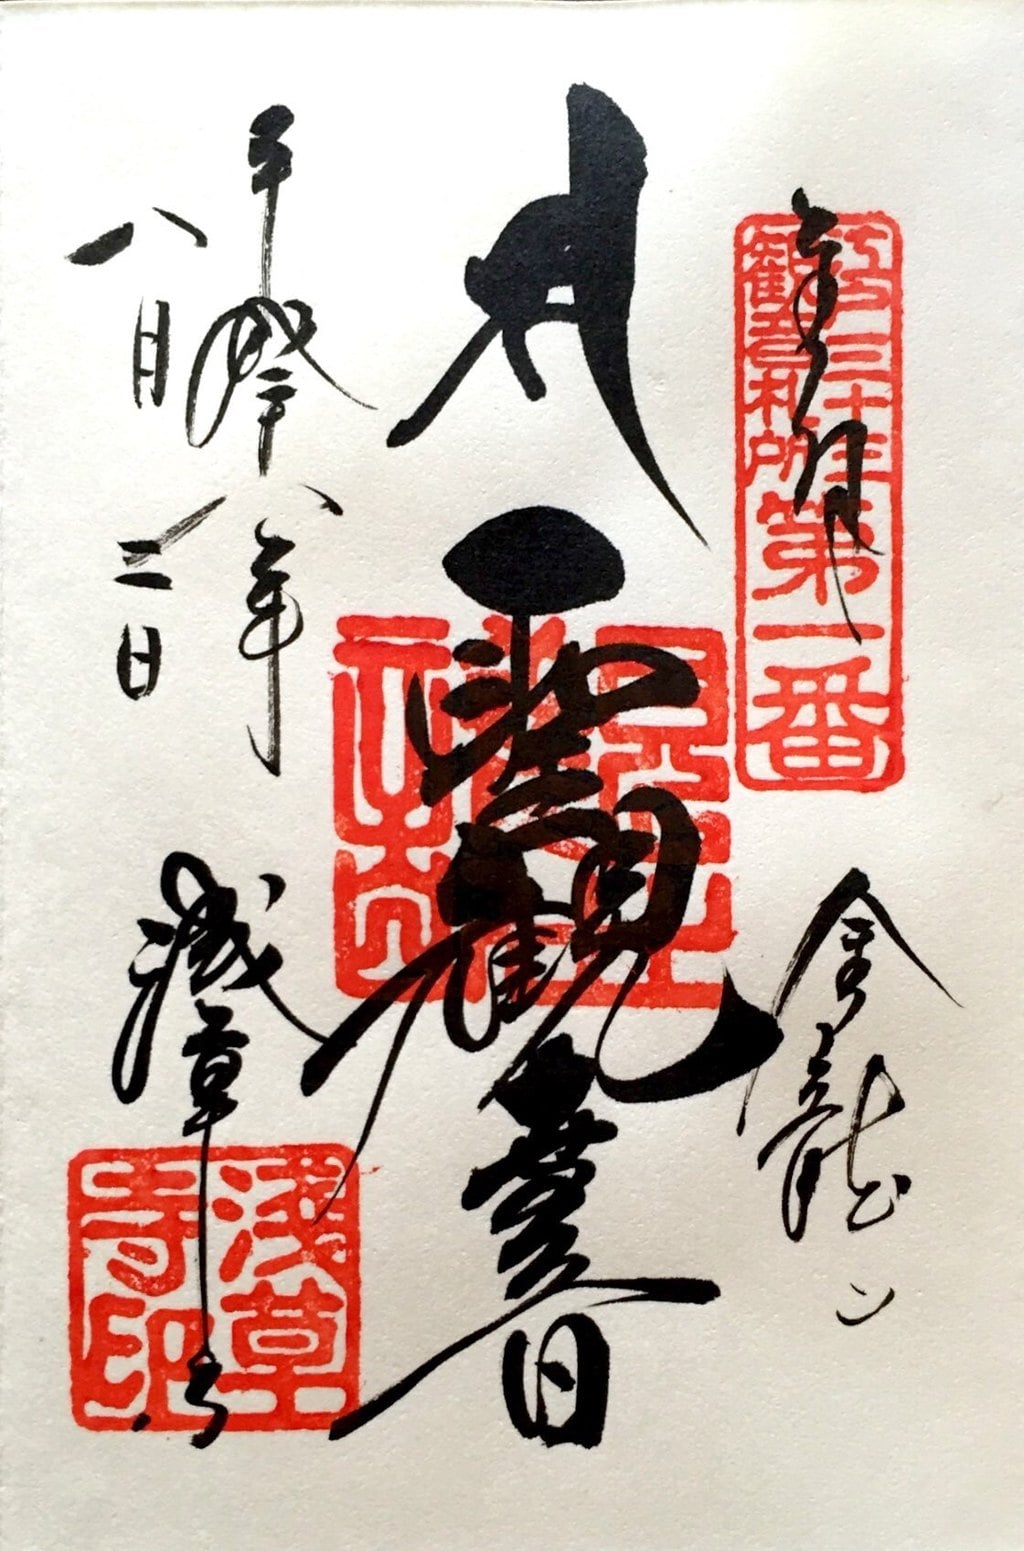 奉拝
江戸三十三
観音札所
第一番
金龍山
聖観世音
平成二十八年
八月二日
浅草寺
浅草
寺印